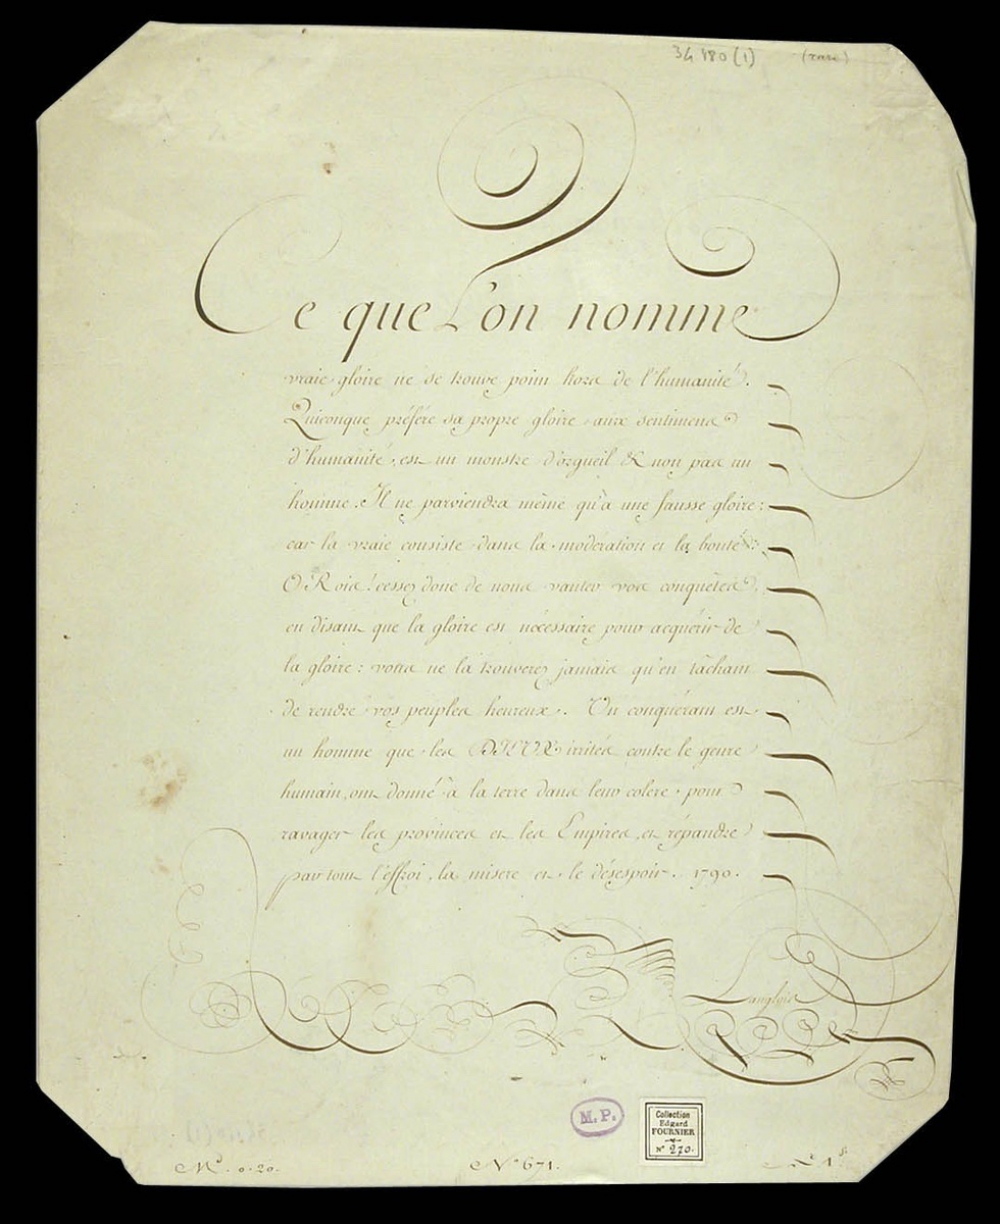 34180(1) (rare)
Ce que l'on nomme
vraie gloire ne se trouve point hors de l'humanité.
Quiconque préfère sa propre gloire aux sentimens
d'humanité, est un monstre d'orgueil & non pas un
homme. Il ne parviendra même qu'à une fausse gloire:
car la vraie consiste dans la modération et la bonté:
O Rois! cessez donc de nous vanter vos conquêtes,
en disant que la gloire est nécessaire pour acquérir de
la gloire: vous ne la trouverez jamais qu'en tâchant
de rendre vos peuples heureux. Un conquérant est
un homme que les DIEUX irrités contre le genre
humain, ont donné à la terre dans leur colère, pour
ravager les provinces et les Empires, et répandre
par tout l'effroi, la misere et le désespoir. 1790.
Langlois
M.P.
Collection
Edgard
FOURNIER
N° 270.
N° 671.